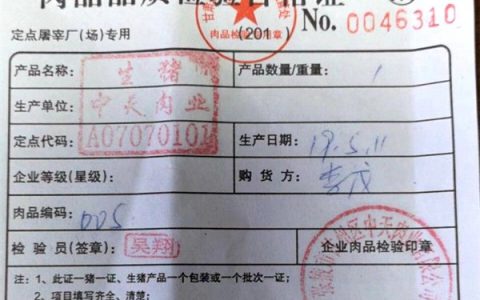 肉品品质检验合格证
肉品检验 印章
(201
No. 0046310
定点屠宰厂(场)专用
产品名称: 生猪
产品数量/重量: 1
生产单位: 中天肉业
定点代码: A07070101
生产日期: 19.5.11
企业等级(星级):
购 货 方:
肉品编码: 005
检 验 员(签章): 吴翔
企业肉品检验印章
区中天肉
注:1、此证一猪一证、生猪产品一个包装或一个批次一证;
2、项目填写齐全、清楚;